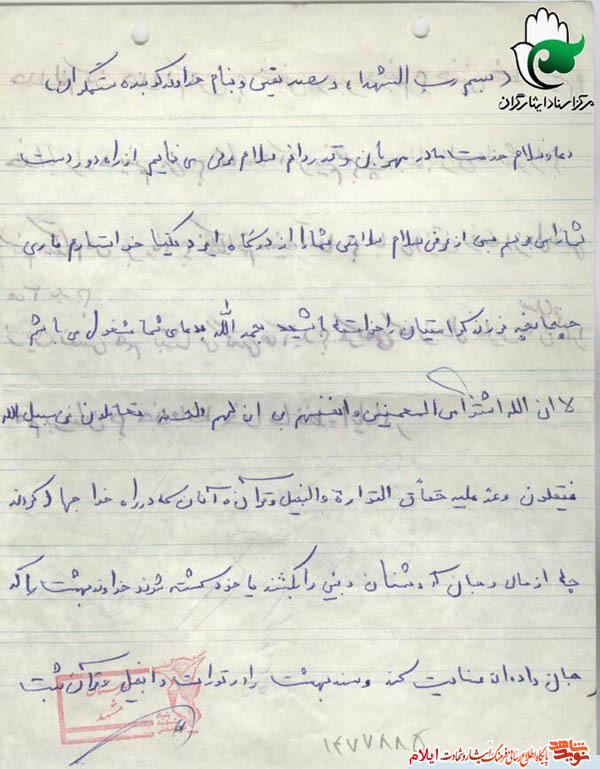 مرکز اسناد ایثارگران
بسم رب الشهداء و صدیقین و بنام خداوند کوبنده ستمگران
دعا و سلام خدمت مادر مهربان و قدردانم سلام عرض می نمایم از راه دور دست
شما را می بوسم پس از عرض سلام سلامتی شما را از درگاه ایزد یکتا خواستارم
چنانچه فرزند گرامیتان را خواسته باشید بحمد الله بدعای شما مشغول می باشم
ان الله اشترا من المومنین و انفسهم بی ان لهم الجنه یقاتلون فی سبیل الله
فیقتلون وعد علیه حقاً فی التوارة والنجیل و قرآن آنان که در راه خدا جهاد کردند
چه از مال و جان که دشمنان دینی را بکشند یا خود کشته شوند خداوند بهشت را که
جان داده اند عنایت کند و سند بهشت را در تورات و انجیل و قرآن ثبت
مشهد
۱۴۷۷۸۸۵
نوید شاهد
پایگاه اطلاع رسانی فرهنگ ایثار و شهادت ایلام